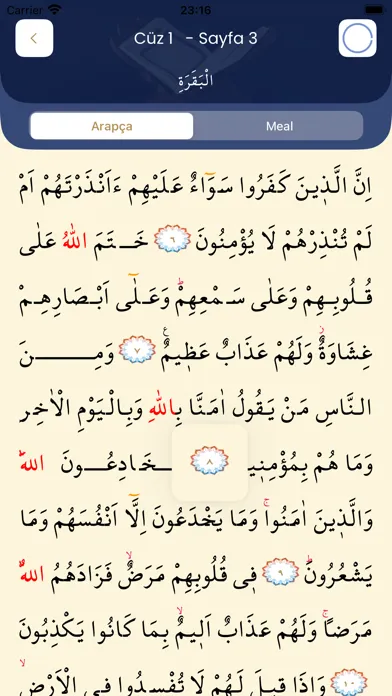 Carrier 23:16
Cüz 1 - Sayfa 3
الْبَقَرَةِ
Arapça Meal
اِنَّ الَّذ۪ينَ كَفَرُوا سَوَٓاءٌ عَلَيْهِمْ ءَاَنْذَرْتَهُمْ اَمْ
لَمْ تُنْذِرْهُمْ لَا يُؤْمِنُونَ ٦ خَتَمَ اللّٰهُ عَلٰى
قُلُوبِهِمْ وَعَلٰى سَمْعِهِمْۜ وَعَلٰٓى اَبْصَارِهِمْ
غِشَاوَةٌۘ وَلَهُمْ عَذَابٌ عَظ۪يمٌ۟ ٧ وَمِنَ
النَّاسِ مَنْ يَقُولُ اٰمَنَّا بِاللّٰهِ وَبِالْيَوْمِ الْاٰخِرِ
وَمَا هُمْ بِمُؤْمِن۪ي ٨ خَادِعُونَ اللّٰهَ
وَالَّذ۪ينَ اٰمَنُواۚ وَمَا يَخْدَعُونَ اِلَّٓا اَنْفُسَهُمْ وَمَا
يَشْعُرُونَۜ ٩ ف۪ي قُلُوبِهِمْ مَرَضٌۙ فَزَادَهُمُ اللّٰهُ
مَرَضاًۚ وَلَهُمْ عَذَابٌ اَل۪يمٌۙ بِمَا كَانُوا يَكْذِبُونَ
١٠ وَاِذَا ق۪يلَ لَهُمْ لَا تُفْسِدُوا فِي الْاَرْضِۙ